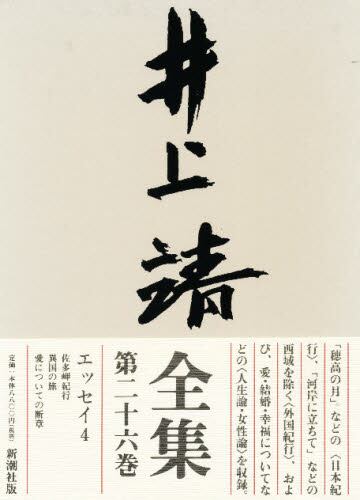 井上靖
全集
第二十六巻
「穂高の月」などの〈日本紀
行〉、「河岸に立ちて」などの
西域を除く〈外国紀行〉、およ
び、愛・結婚・幸福についてな
どの〈人生論・女性論〉を収録。
エッセイ4
佐多岬紀行
異国の旅
愛についての断章
定価：本体八八〇〇円（税別）
新潮社版